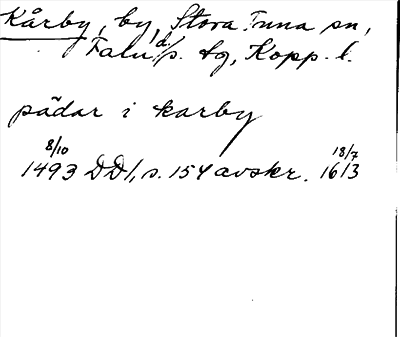 Kårby, by, Stora Tuna sn,
Falu d/s. tg, Kopp. l.
pädar i karby
8/10 18/7
1493 DD1, s. 154 avskr. 1613